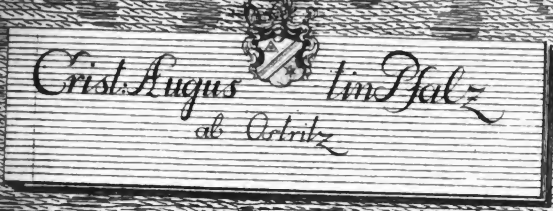 Crist: Augus tin Pfalz
ab Ostritz